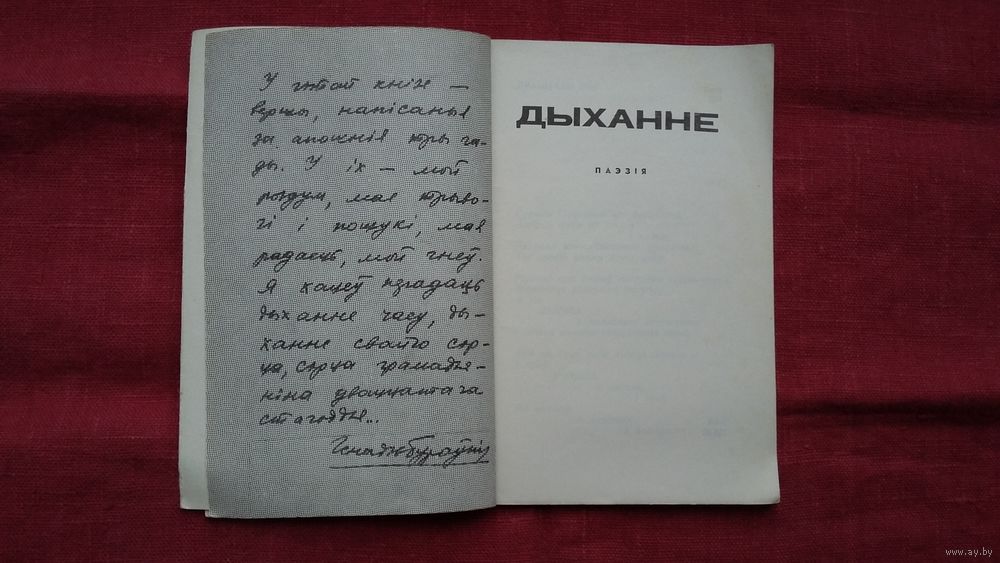 У гэтай кнізе —
вершы, напісаныя
за апошнія тры га-
ды. У іх — мой
роздум, мае трыво-
гі і пошукі, мая
радасць, мой гнеў.
Я хацеў перадаць
дыханне часу, ды-
ханне свайго сэр-
ца, сэрца грамадзя-
ніна дваццатага
стагоддзя...
Генадзь Бураўкін
ДЫХАННЕ
ПАЭЗІЯ
www.ay.by